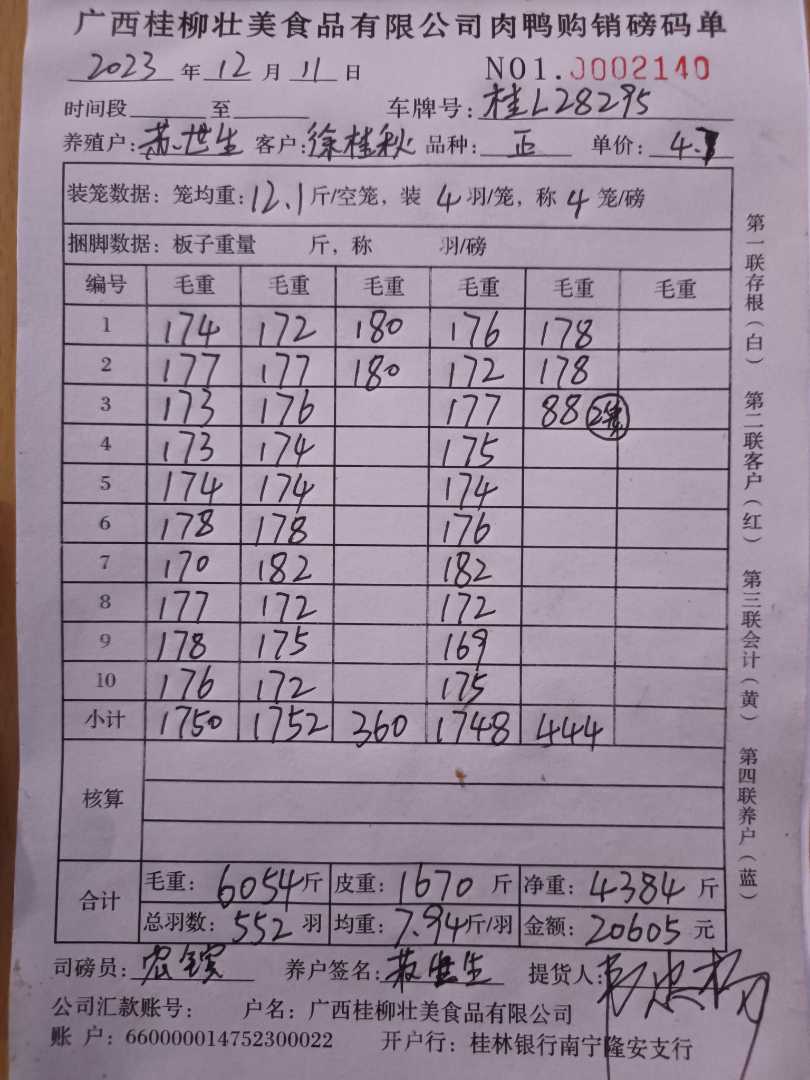 广西桂柳壮美食品有限公司肉鸭购销磅码单
2023 年 12 月 11 日 NO1.0002140
时间段 至 车牌号: 桂L28295
养殖户: 苏世生 客户: 徐桂秋 品种: 正 单价: 4.7
装笼数据: 笼均重: 12.1 斤/空笼, 装 4 羽/笼, 称 4 笼/磅
捆脚数据: 板子重量 斤, 称 羽/磅
编号 毛重 毛重 毛重 毛重 毛重 毛重
1 174 172 180 176 178
2 177 177 180 172 178
3 173 176 177 88 2笼
4 173 174 175
5 174 174 174
6 178 178 176
7 170 182 182
8 177 172 172
9 178 175 169
10 176 172 175
小计 1750 1752 360 1748 444
核算
合计
毛重: 6054 斤 皮重: 1670 斤 净重: 4384 斤
总羽数: 552 羽 均重: 7.94 斤/羽 金额: 20605 元
司磅员: 养户签名: 苏世生 提货人:
公司汇款账号: 户名: 广西桂柳壮美食品有限公司
账 户: 660000014752300022 开户行: 桂林银行南宁隆安支行
第一联存根(白) 第二联客户(红) 第三联会计(黄) 第四联养户(蓝)